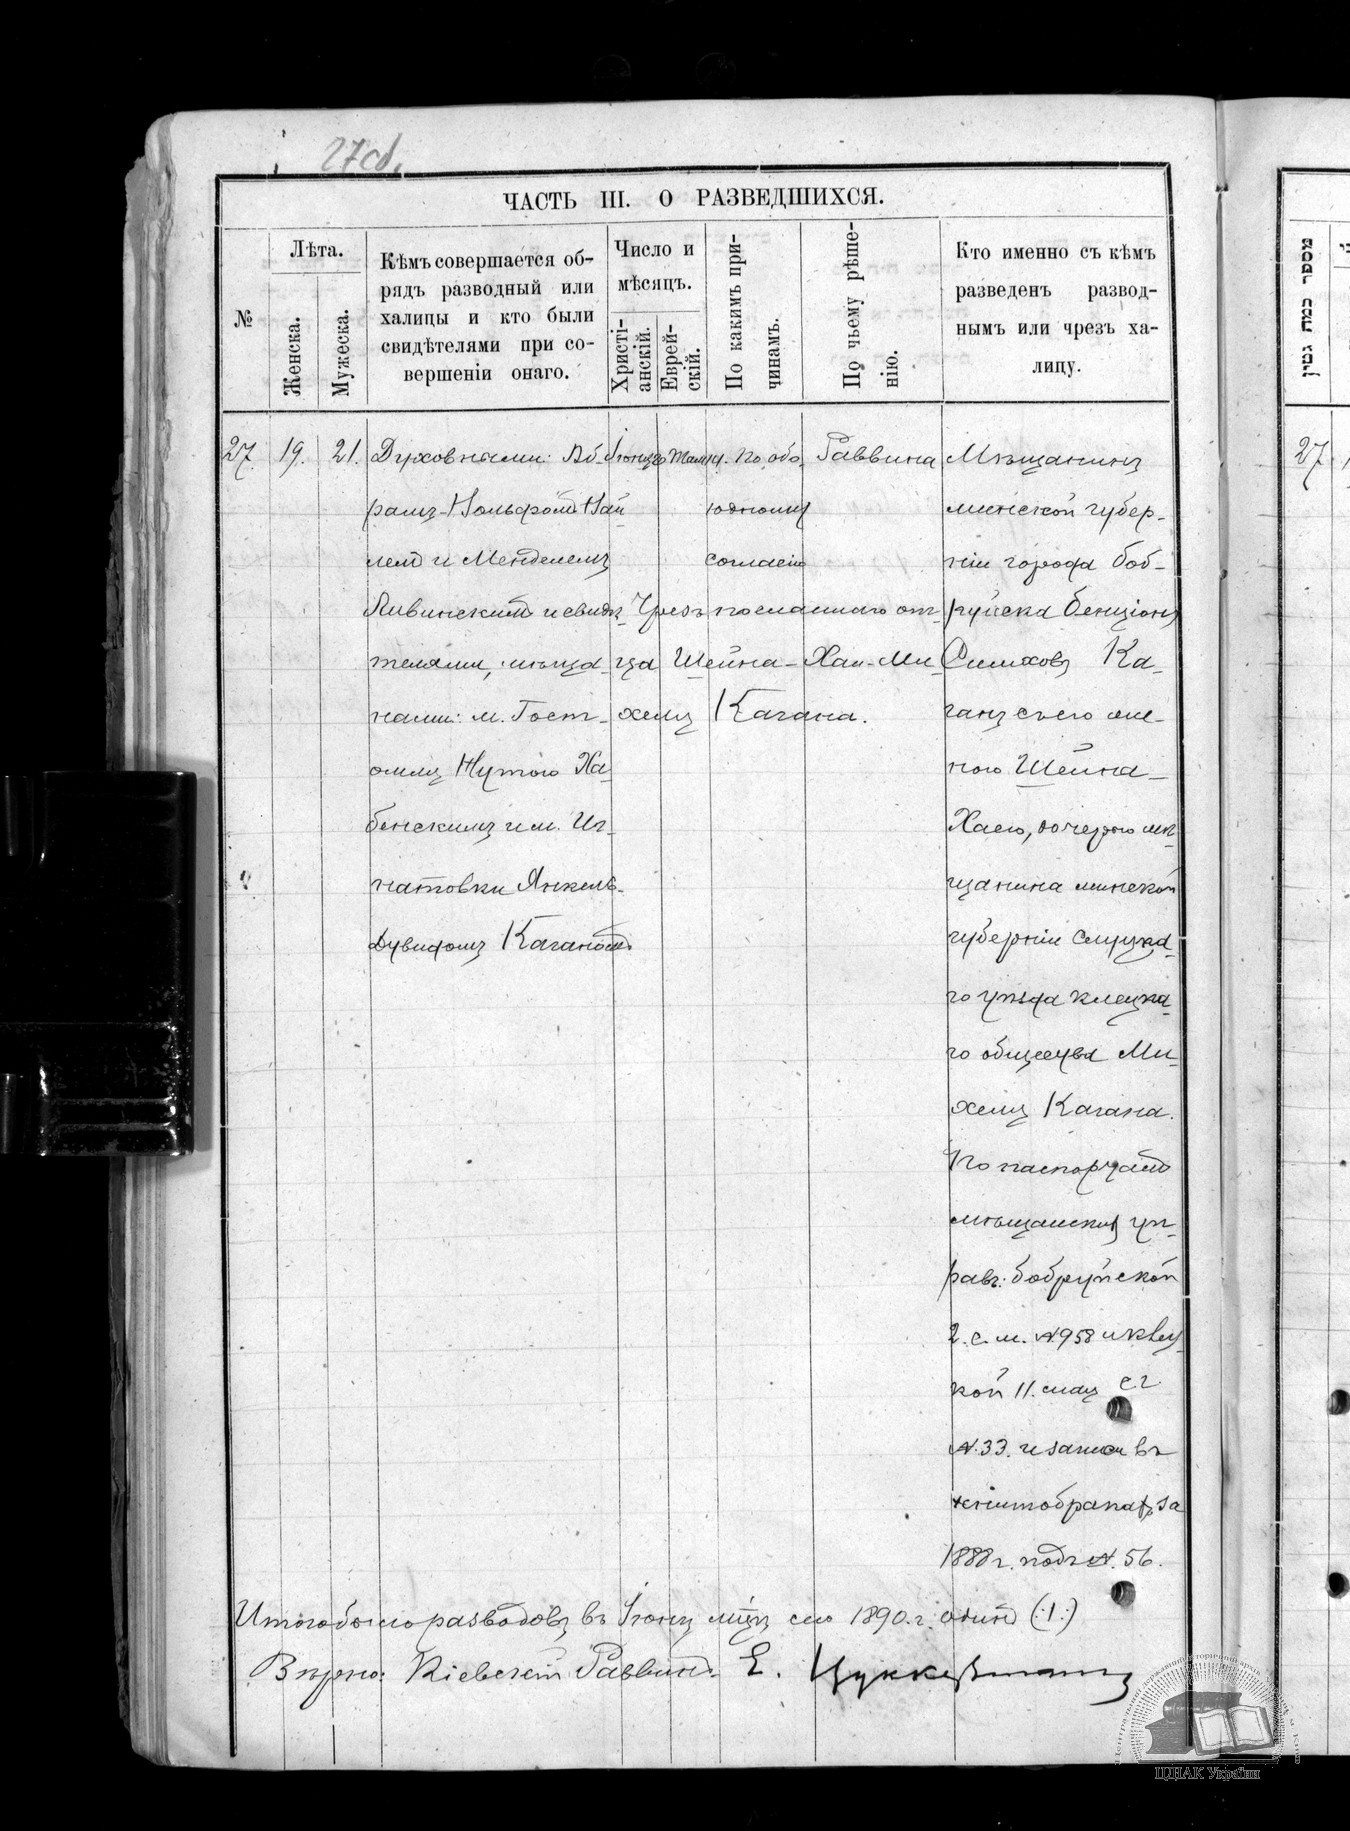 27об.
ЧАСТЬ III. О РАЗВЕДШИХСЯ.
№
Лѣта.
Женска.
Мужеска.
Кѣмъ совершается об-
рядъ разводный или
халицы и кто были
свидѣтелями при со-
вершеніи онаго.
Число и
мѣсяцъ.
Христі-
анскій.
Еврей-
скій.
По какимъ при-
чинамъ.
По чьему рѣше-
нію.
Кто именно съ кѣмъ
разведенъ развод-
нымъ или чрезъ ха-
лицу.
27.
19.
21.
Духовными: Аб-
рамъ-Вольфомъ
и Менделемъ
и свидѣ-
телями, мѣща-
нами: м. Гост-
омля Нутою Ха-
бенскимъ и м. Иг-
натовки Янкель-
Дувидомъ Каганомъ
По обо-
юдному
согласію
Раввина
Чрезъ посланнаго от-
ца Шейна-Хаи-Ми-
хеля Кагана.
Мѣщанинъ
минской губер-
ніи города Боб-
руйска Бенціонъ
Симховъ Ка-
ганъ съ его же-
ною Шейна-
Хаею, дочерью мѣ-
щанина минской
губерніи слуцка-
го уѣзда клецка-
го общества Ми-
хеля Кагана.
По паспортамъ
мѣщанскихъ уп-
рав: бобруйской
2. с. м. №958 и клец-
кой 11. мая с.г.
№.33. и записи въ
книгѣ о бракахъ за
1888 г. подъ №. 56.
Итого было разводовъ въ Іюнѣ мѣцѣ сего 1890.г. одинъ (:1:)
Вѣрно: Кіевскій Раввинъ Е. Цуккерманъ
מספר כמה גטין
27
ЦДІАК України